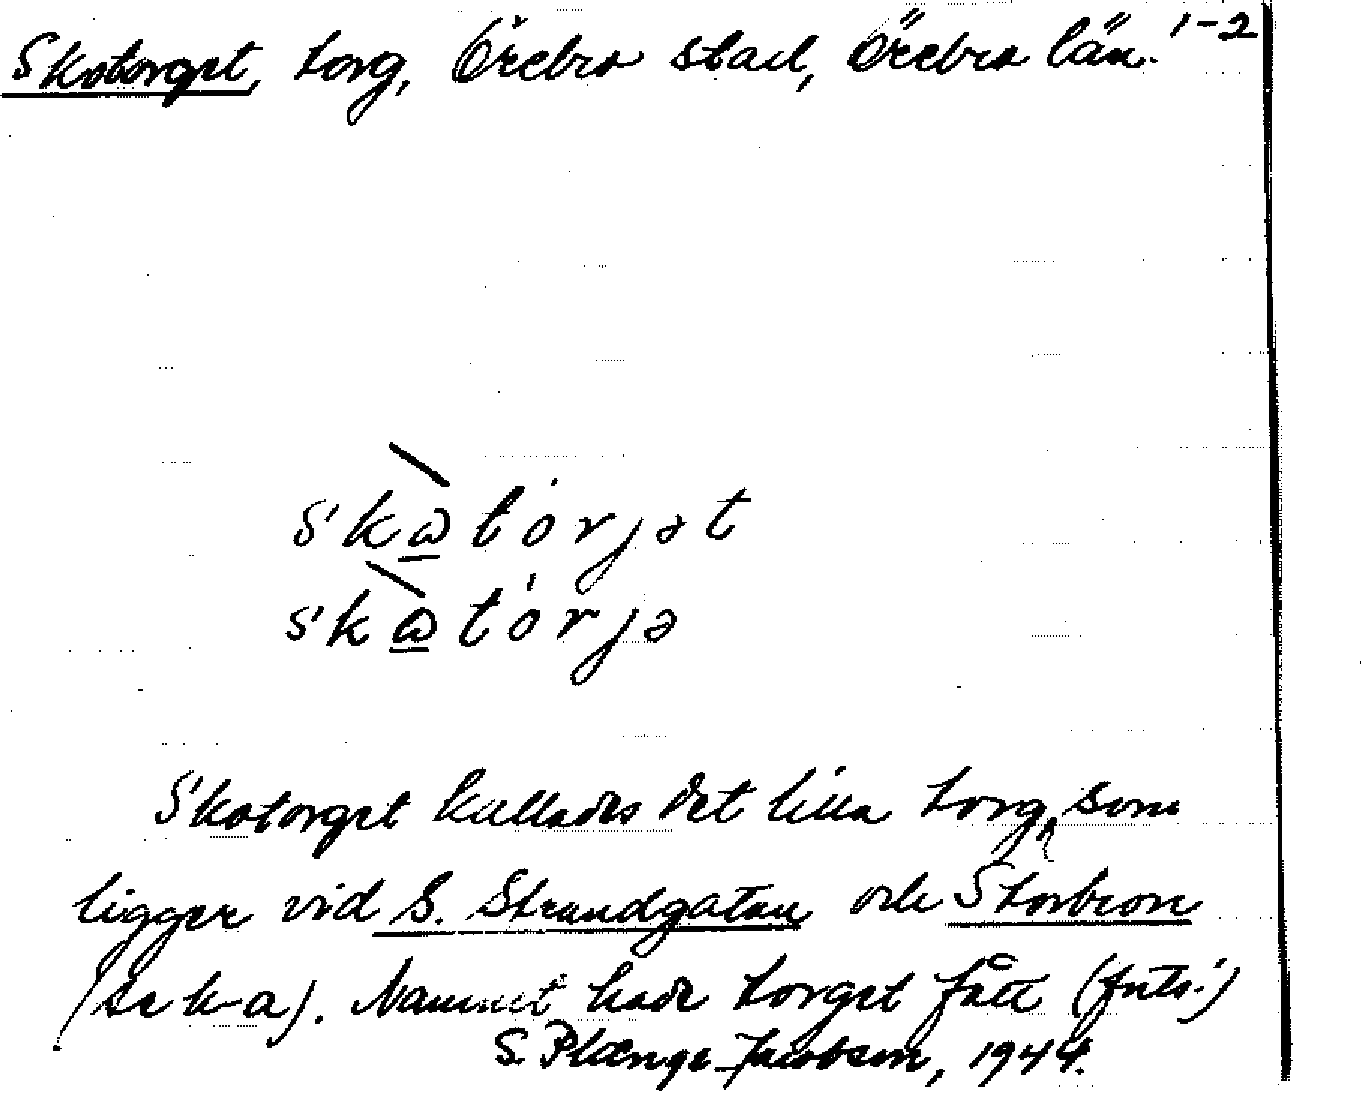 Skotorget, torg, Örebro stad, Örebro län. 1-2
skωtórjət
skωtórjə
Skotorget kallades det lilla torg, som
ligger vid S. Strandgatan och Storbron
(se k-a). Namnet hade torget fått (forts.)
S. Plænge-Jacobson, 1944.